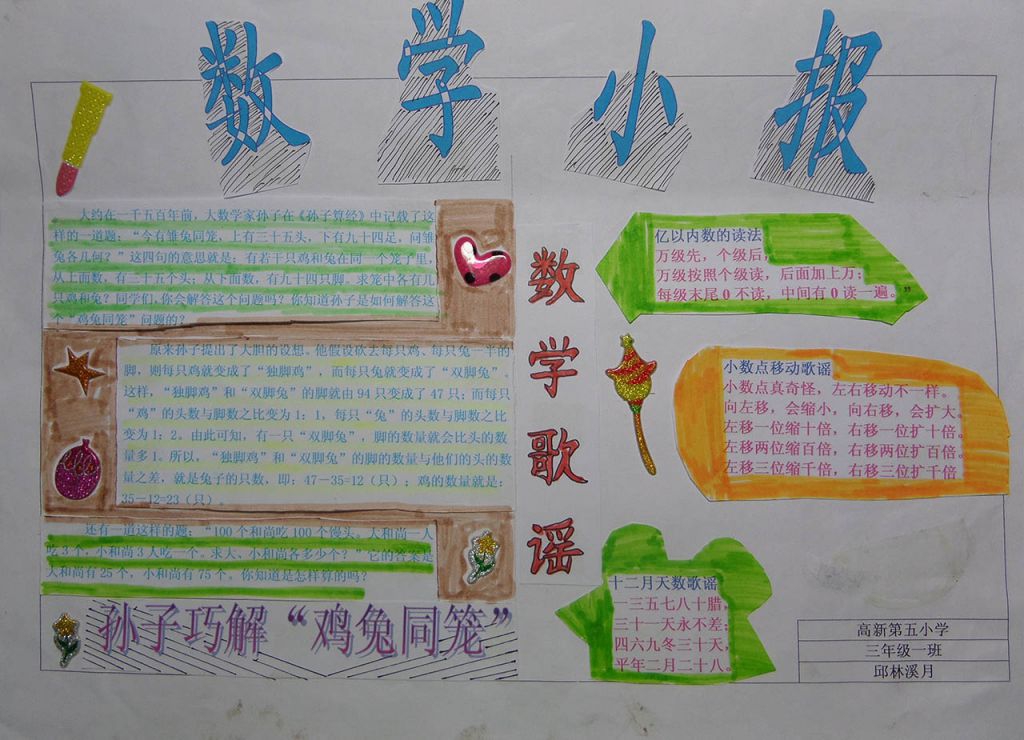 数学小报
大约在一千五百年前，大数学家孙子在《孙子算经》中记载了这
样的一道题：“今有雉兔同笼，上有三十五头，下有九十四足，问雉
兔各几何？”这四句的意思就是：有若干只鸡和兔在同一个笼子里，
从上面数，有三十五个头；从下面数，有九十四只脚。求笼中各有几
只鸡和兔？同学们，你会解答这个问题吗？你知道孙子是如何解答这
个“鸡兔同笼”问题的？
原来孙子提出了大胆的设想。他假设砍去每只鸡、每只兔一半的
脚，则每只鸡就变成了“独脚鸡”，而每只兔就变成了“双脚兔”。
这样，“独脚鸡”和“双脚兔”的脚就由94只变成了47只；而每只
“鸡”的头数与脚数之比变为1：1，每只“兔”的头数与脚数之比
变为1：2。由此可知，有一只“双脚兔”，脚的数量就会比头的数
量多1。所以，“独脚鸡”和“双脚兔”的脚的数量与他们的头的数
量之差，就是兔子的只数，即：47－35=12（只）；鸡的数量就是：
35－12=23（只）。
还有一道这样的题：“100个和尚吃100个馒头。大和尚一人
吃3个，小和尚3人吃一个。求大、小和尚各多少个？”它的答案是
大和尚有25个，小和尚有75个。你知道是怎样算的吗？
孙子巧解“鸡兔同笼”
数学歌谣
亿以内数的读法
万级先，个级后，
万级按照个级读，后面加上万；
每级末尾0不读，中间有0读一遍。”
小数点移动歌谣
小数点真奇怪，左右移动不一样。
向左移，会缩小，向右移，会扩大。
左移一位缩十倍，右移一位扩十倍。
左移两位缩百倍，右移两位扩百倍。
左移三位缩千倍，右移三位扩千倍
十二月天数歌谣
一三五七八十腊，
三十一天永不差；
四六九冬三十天，
平年二月二十八。
高新第五小学
三年级一班
邱林溪月